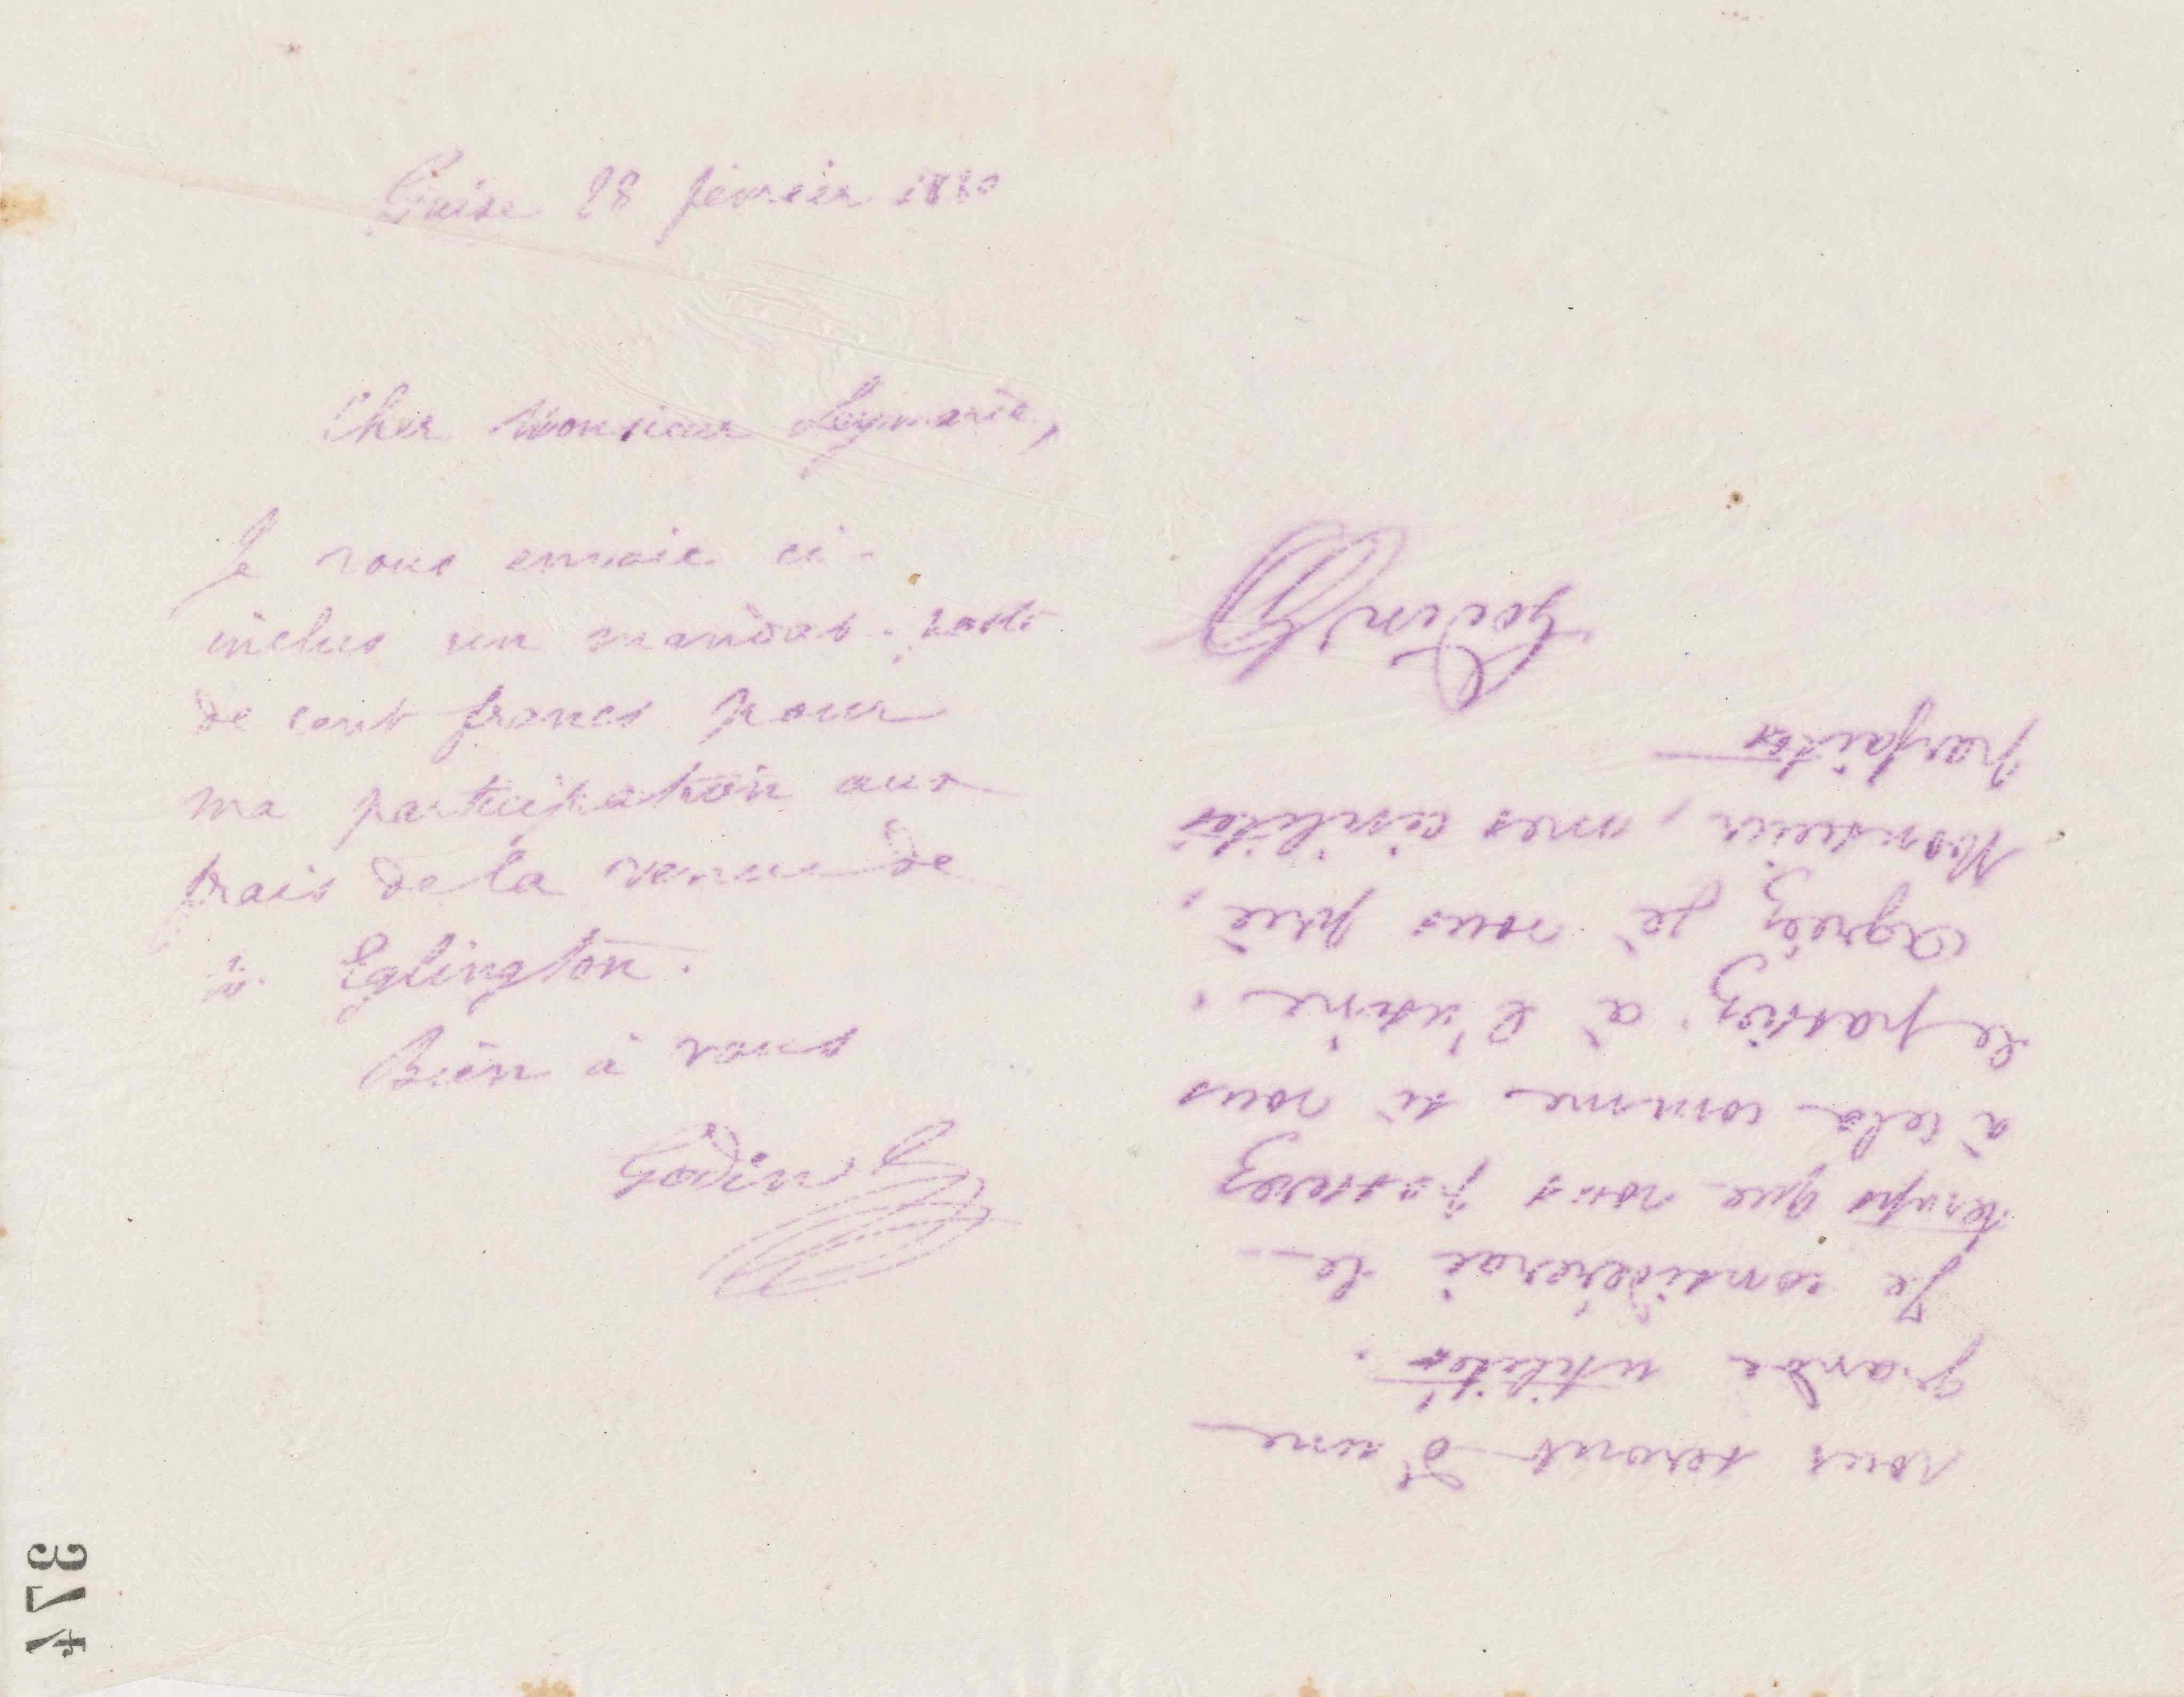 Guise 28 février 1880
Cher Monsieur Leymarie,
Je vous envoie ci-
inclus un mandat-poste
de cent francs pour
ma participation aux
frais de la venue de
Eglington.
Bien à vous
Godin
vous seront d'une
grande utilité.
Je considérerai le
temps que vous passerez
à cela comme si vous
le passiez à l'usine.
Agréez je vous prie,
Monsieur, mes civilités
parfaites
Godin
374